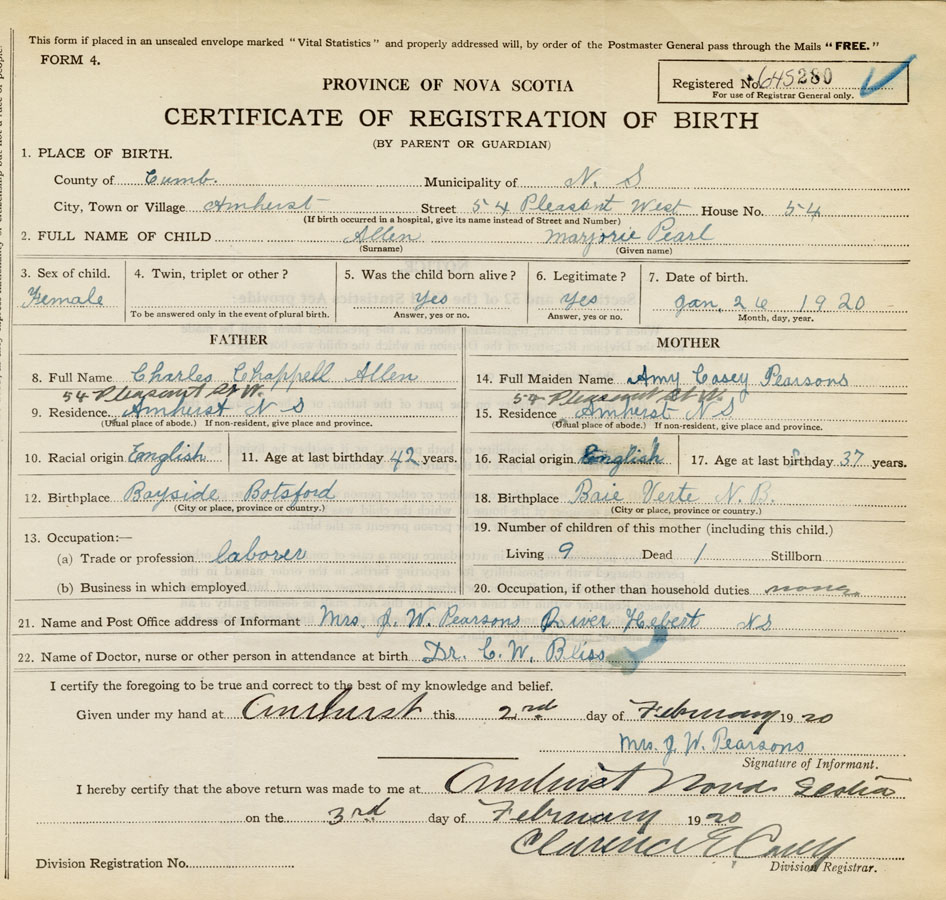 This form if placed in an unsealed envelope marked "Vital Statistics" and properly addressed will, by order of the Postmaster General pass through the Mails "FREE."
FORM 4.
Registered No. 280
For use of Registrar General only.
PROVINCE OF NOVA SCOTIA
CERTIFICATE OF REGISTRATION OF BIRTH
(BY PARENT OR GUARDIAN)
1. PLACE OF BIRTH.
County of Cumb. Municipality of N. S
City, Town or Village Amherst Street 54 Pleasant West House No. 54
(If birth occurred in a hospital, give its name instead of Street and Number)
2. FULL NAME OF CHILD Allen Marjorie Pearl
(Surname) (Given name)
3. Sex of child. 4. Twin, triplet or other? 5. Was the child born alive? 6. Legitimate? 7. Date of birth.
Female yes yes Jan, 26 1920
To be answered only in the event of plural birth. Answer, yes or no. Answer, yes or no. Month, day, year.
FATHER MOTHER
8. Full Name Charles Chappell Allen 14. Full Maiden Name Amy Casey Pearsons
54 Pleasant St W. 54 Pleasant St W.
9. Residence. Amherst N S 15. Residence Amherst N S
(Usual place of abode.) If non-resident, give place and province. (Usual place of abode.) If non-resident, give place and province.
10. Racial origin English 11. Age at last birthday 42 years. 16. Racial origin English 17. Age at last birthday 37 years.
12. Birthplace Bayside Botsford 18. Birthplace Baie Verte N.B.
(City or place, province or country.) (City or place, province or country.)
13. Occupation:— 19. Number of children of this mother (including this child.)
(a) Trade or profession laborer Living 9 Dead 1 Stillborn
(b) Business in which employed 20. Occupation, if other than household duties none
21. Name and Post Office address of Informant Mrs. J. W. Pearsons River Hebert NS
22. Name of Doctor, nurse or other person in attendance at birth Dr. C. W. Bliss
I certify the foregoing to be true and correct to the best of my knowledge and belief.
Given under my hand at Amherst this 2nd day of February 1920
Mrs. J. W. Pearsons
Signature of Informant.
I hereby certify that the above return was made to me at Amherst Nova Scotia
on the 3rd day of February 1920
Clarence E Casey
Division Registration No. Division Registrar.